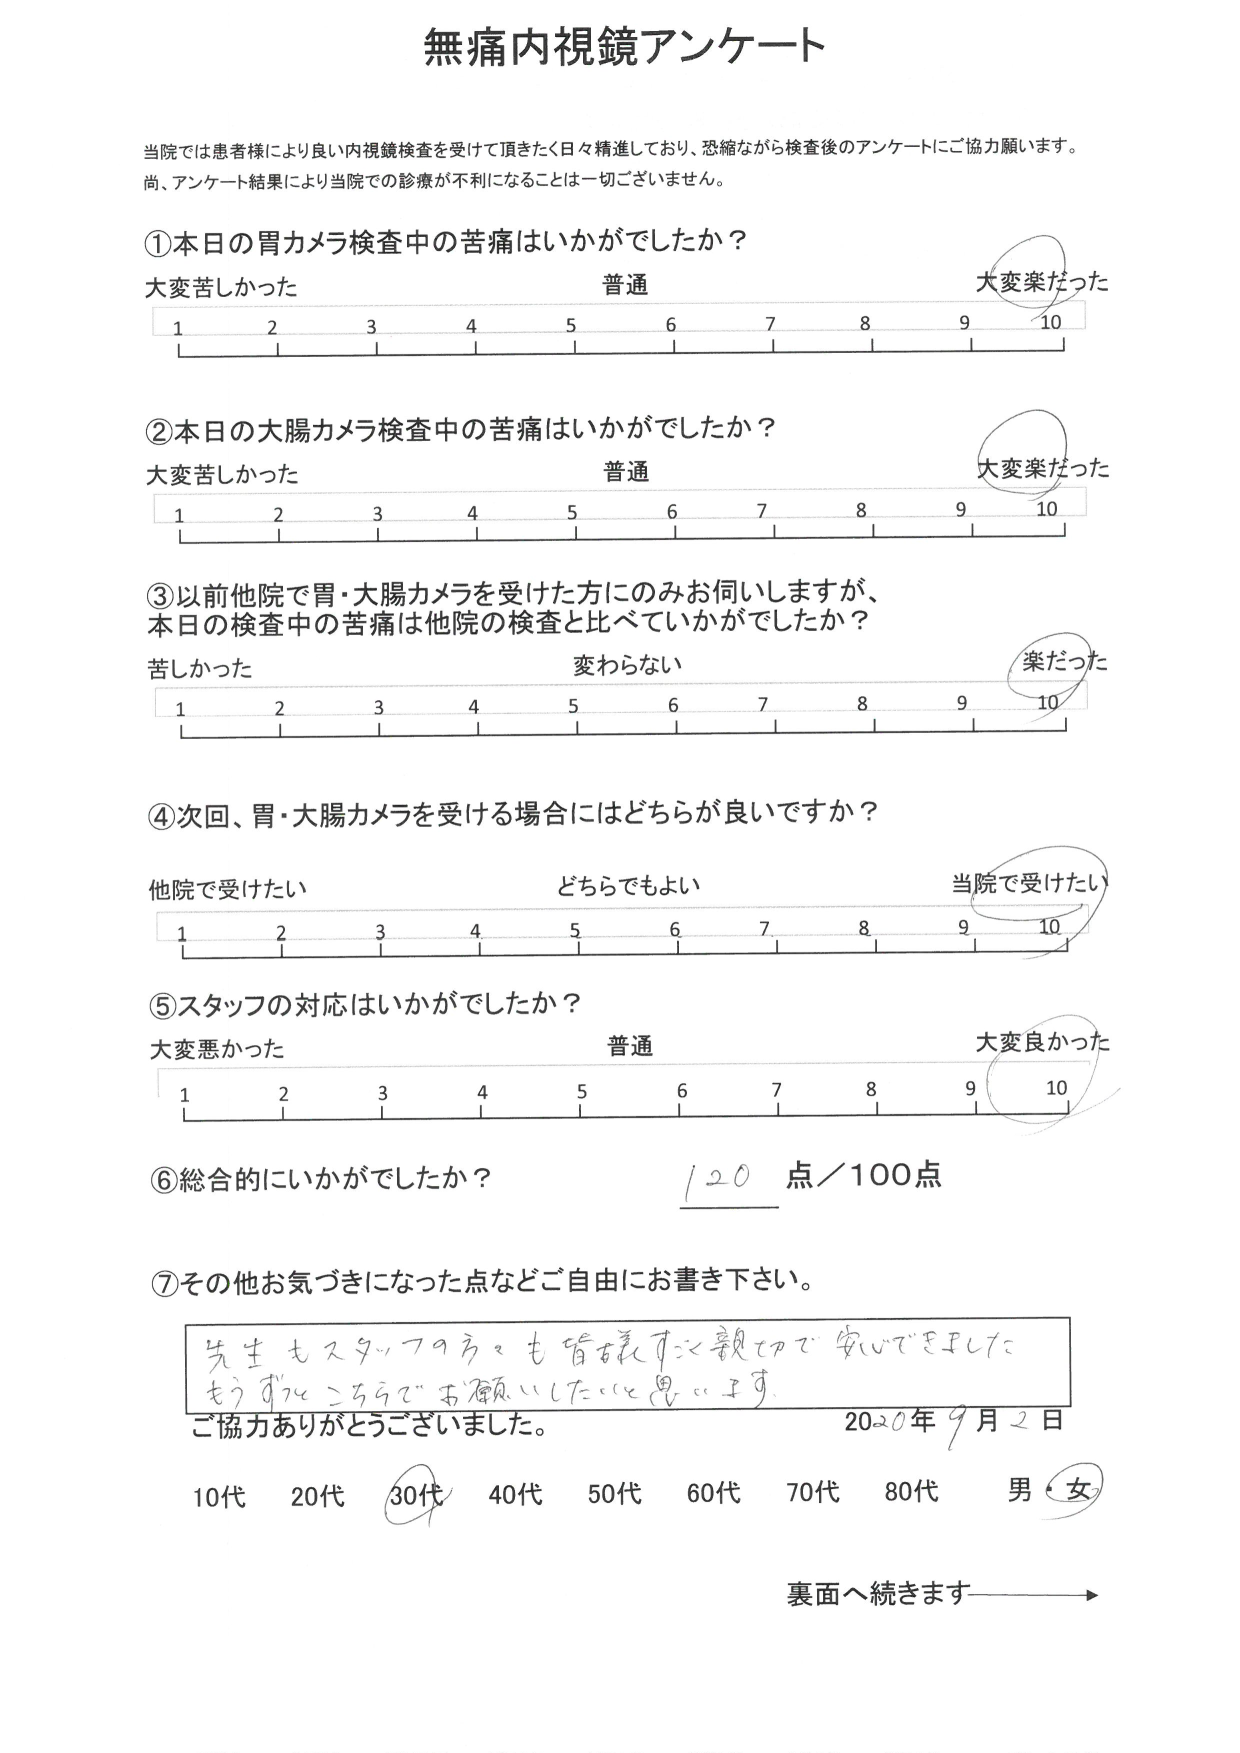 無痛内視鏡アンケート
当院では患者様により良い内視鏡検査を受けて頂きたく日々精進しており、恐縮ながら検査後のアンケートにご協力願います。
尚、アンケート結果により当院での診療が不利になることは一切ございません。
①本日の胃カメラ検査中の苦痛はいかがでしたか？
大変苦しかった 普通 大変楽だった
1 2 3 4 5 6 7 8 9 10
②本日の大腸カメラ検査中の苦痛はいかがでしたか？
大変苦しかった 普通 大変楽だった
1 2 3 4 5 6 7 8 9 10
③以前他院で胃・大腸カメラを受けた方にのみお伺いしますが、
本日の検査中の苦痛は他院の検査と比べていかがでしたか？
苦しかった 変わらない 楽だった
1 2 3 4 5 6 7 8 9 10
④次回、胃・大腸カメラを受ける場合にはどちらが良いですか？
他院で受けたい どちらでもよい 当院で受けたい
1 2 3 4 5 6 7 8 9 10
⑤スタッフの対応はいかがでしたか？
大変悪かった 普通 大変良かった
1 2 3 4 5 6 7 8 9 10
⑥総合的にいかがでしたか？ 120 点／100点
⑦その他お気づきになった点などご自由にお書き下さい。
先生もスタッフの方々も皆様すごく親切で安心できました
もうずっとこちらでお願いしたいと思います。
ご協力ありがとうございました。 2020年9月2日
10代 20代 30代 40代 50代 60代 70代 80代 男・女
裏面へ続きます